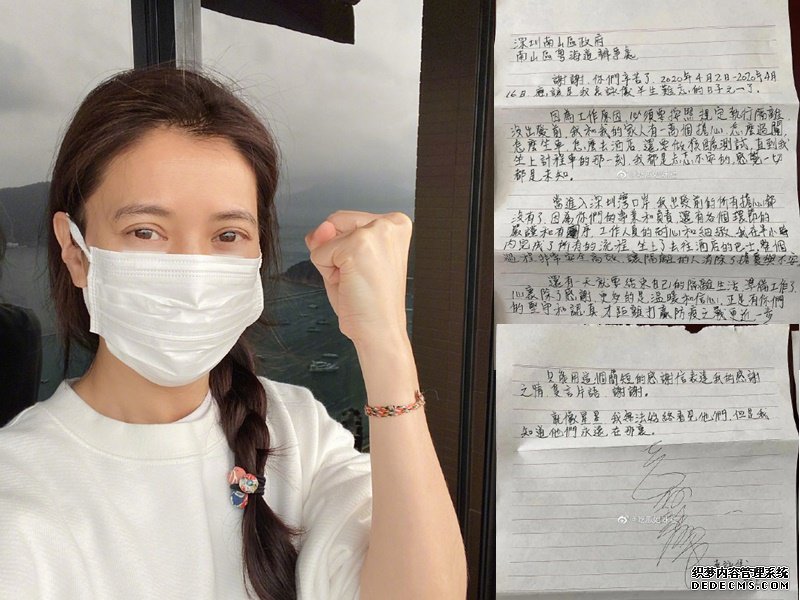 深圳南山區政府
南山區粵海道辦事處
謝謝, 你們辛苦了. 2020年4月2日-2020年4月
16日 應該是我袁詠儀半生難忘的日子之一了.
因為工作原因 必須要按照規定執行隔離,
沒出發前, 我和我的家人有一萬個擔心, 怎麼過關,
怎麼坐車, 怎麼去酒店, 還要做核酸測試, 直到我
坐上計程車的那一刻, 我都是忐忑不安的, 感覺一切
都是未知.
當進入深圳灣口岸, 我出發前的所有擔心都
沒有了, 因為你們的專業和負責, 還有各個環節的
嚴謹和有序, 工作人員的耐心和細緻, 我在半小時
內完成了所有的流程, 坐上了去往酒店的巴士, 整個
過程非常安全高效, 讓隔離的人消除了擔憂與不安
還有一天就要結束自己的隔離生活 準備工作了,
心裏除了感謝, 更多的是溫暖和信心, 正是有你們
的堅守和認真 才距離打贏防疫之戰更近一步
只能用這個簡短的感謝信表達我的感謝
之情 莫言片語 謝謝.
就像星星 我無法始終看見他們, 但是我
知道他們永遠在那裏.
织梦内容管理系统
DEDECMS.COM